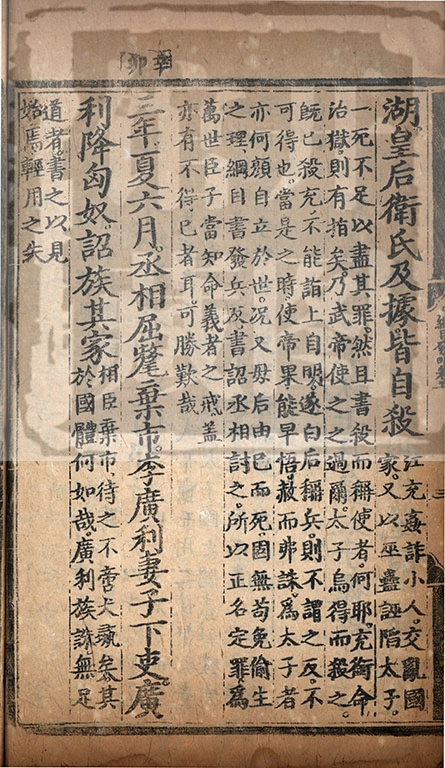 辛卯
湖皇后衛氏及據皆自殺
江充姦詐小人交亂國
家又以巫蠱誣陷太子
一死不足以盡其罪然且書殺而稱使者何耶充銜命
治獄則有指矣乃武帝使之之過爾太子烏得而殺之
既已殺充不能詣上自明遂白后稱兵則不謂之反不
可得也當是之時使帝果能早悟赦而弗誅為太子者
亦何顏自立於世況又母后由己而死固無苟免偷生
之理綱目書發兵反書詔丞相討之所以正名定罪為
萬世臣子當知命義者之戒蓋
亦有不得已者耳可勝歎哉
三年夏六月丞相屈氂棄市李廣利妻子下吏廣
利降匈奴詔族其家
相臣棄市待之不啻犬彘矣其
於國體何如哉廣利族誅無足
道者書之以見
始焉輕用之失